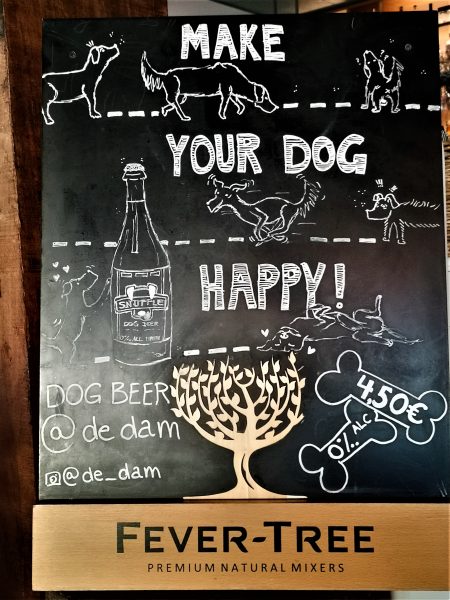 MAKE
YOUR DOG
HAPPY!
SNUFFLE
DOG BEER
DOG BEER
@ de dam
@de_dam
4,50€
0% ALC
FEVER-TREE
PREMIUM NATURAL MIXERS